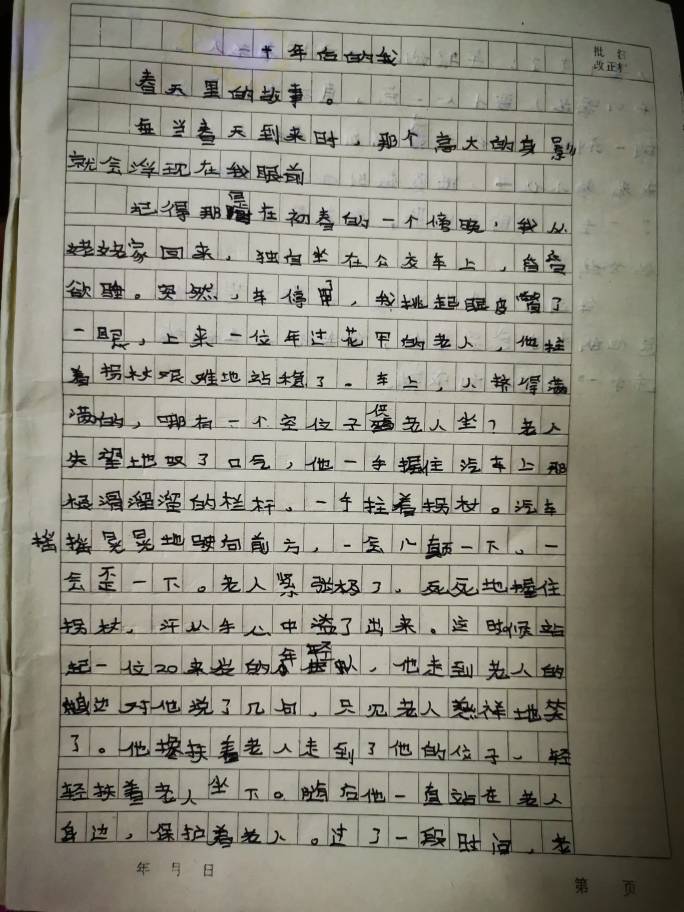 批 注
改正栏
十年后的我
春天里的故事。
每当春天到来时，那个高大的身影
就会浮现在我眼前
记得那是在初春的一个傍晚，我从
姥姥家回来，独自坐在公交车上，昏昏
欲睡。突然，车停了，我挑起眼皮瞥了
一眼，上来一位年过花甲的老人，他拄
着拐杖艰难地站稳了。车上，人挤得满
满的，哪有一个空位子供老人坐？老人
失望地叹了口气，他一手握住汽车上那
根滑溜溜的栏杆，一手拄着拐杖。汽车
摇摇晃晃地驶向前方，一会儿颠一下，一
会歪一下。老人紧张极了，死死地握住
拐杖，汗从手心中溢了出来。这时候站
起一位20来岁的年轻人，他走到老人的
身边对他说了几句，只见老人慈祥地笑
了。他搀扶着老人走到了他的位子，轻
轻扶着老人坐下。随后他一直站在老人
身边，保护着老人。过了一段时间，老
年 月 日
第 页